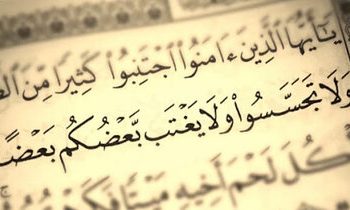 يَٰٓأَيُّهَا ٱلَّذِينَ ءَامَنُوا۟ ٱجْتَنِبُوا۟ كَثِيرًا مِّنَ
وَلَا تَجَسَّسُوا۟ وَلَا يَغْتَب بَّعْضُكُم بَعْضًا
لَحْمَ أَخِيهِ مَيْتًا